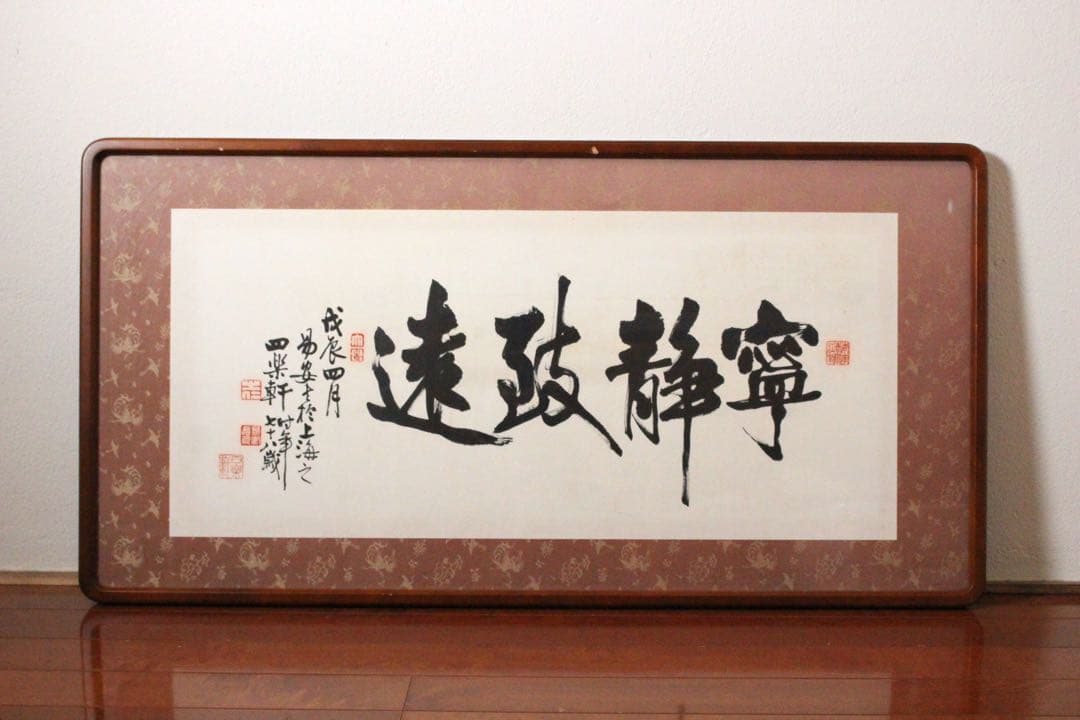 寧靜致遠
戊辰四月
易安士於上海之
四樂軒時年七十八歲